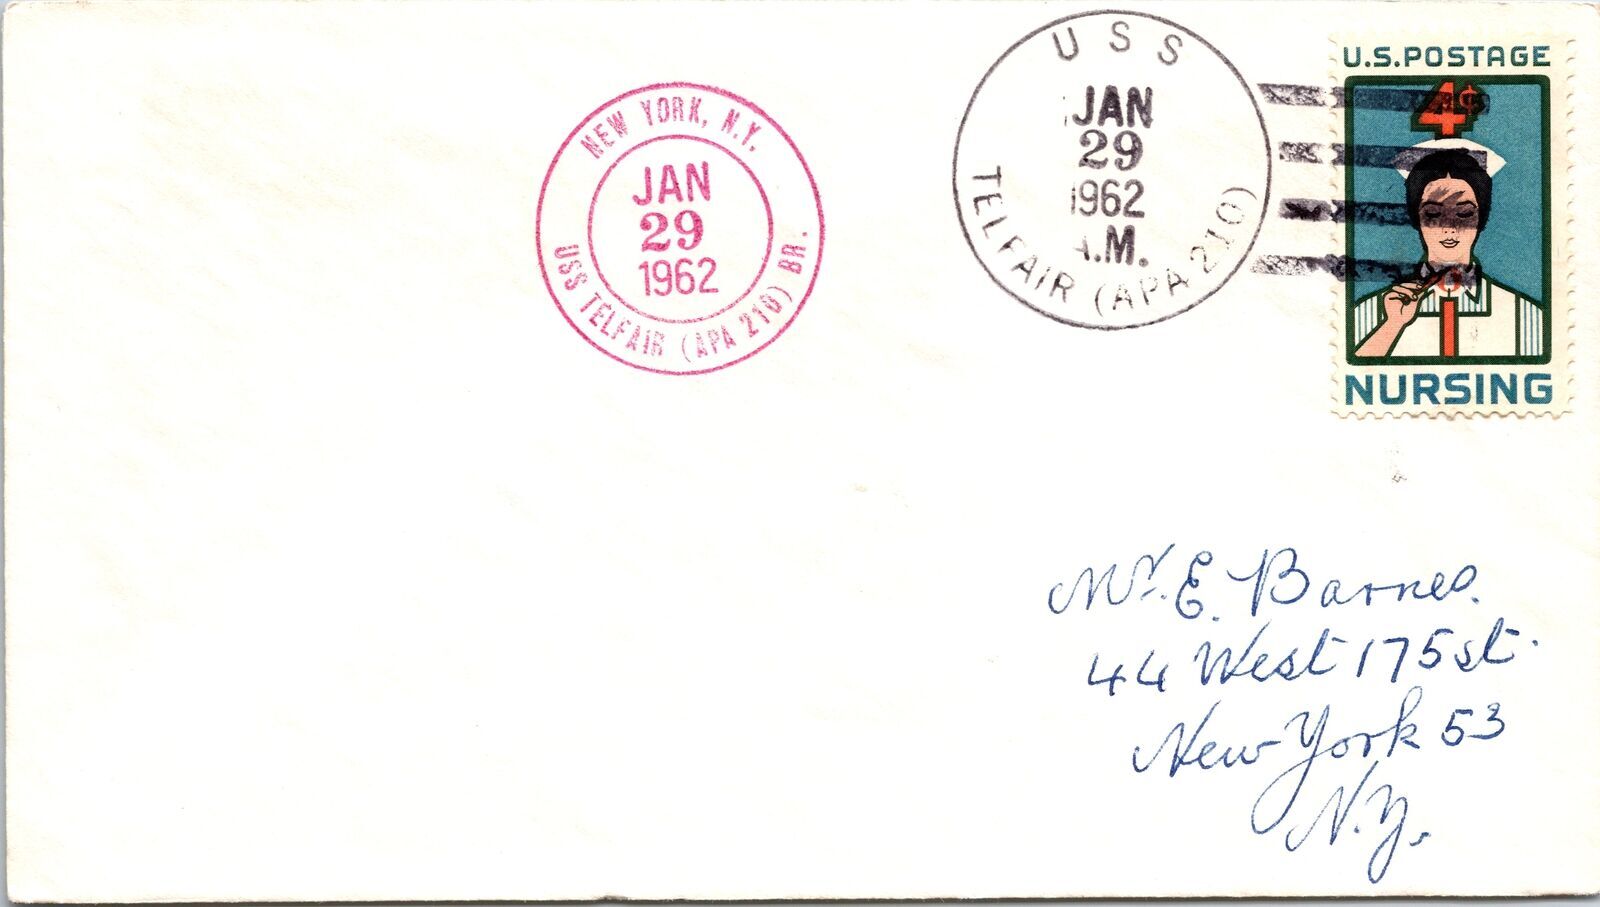 NEW YORK, N.Y.
JAN
29
1962
USS TELFAIR (APA 210) BR.
USS
JAN
29
1962
A.M.
TELFAIR (APA 210)
U.S. POSTAGE
4¢
NURSING
Mr. E. Barnes.
44 West 175 st.
New York 53
N.Y.